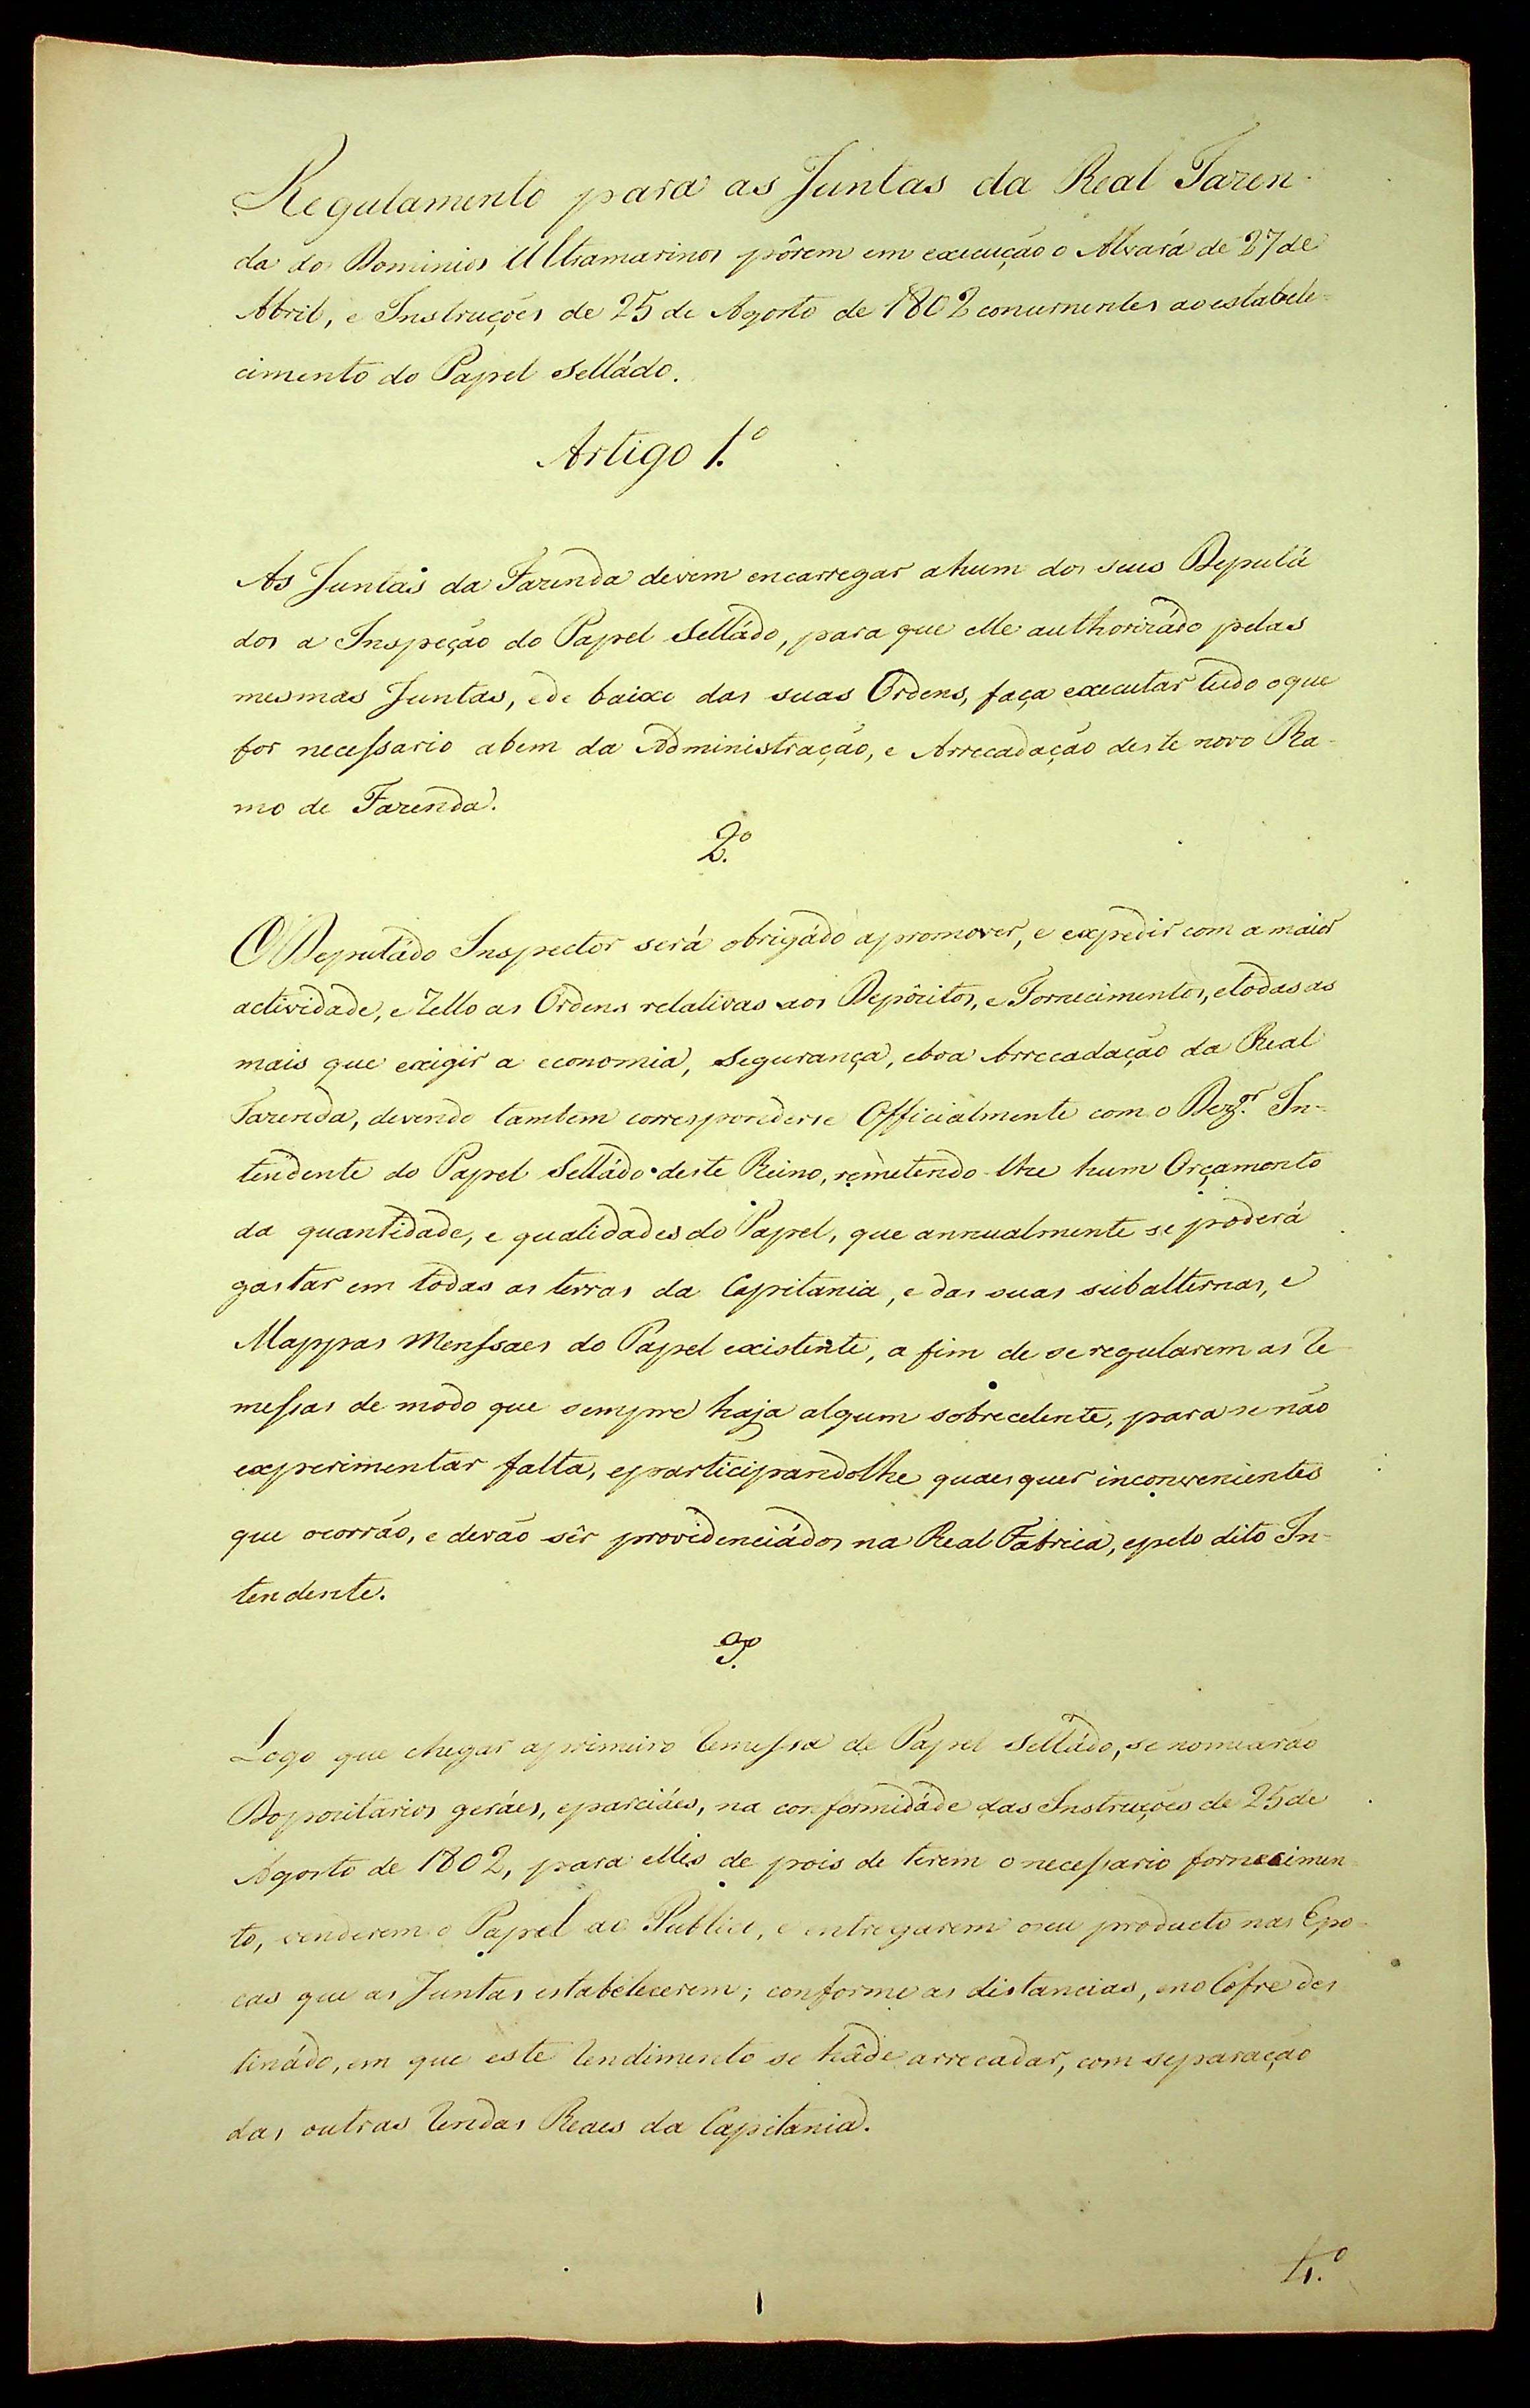 Regulamento para as Juntas da Real Fazen-
da dos Dominios Ultramarinos pôrem em execução o Alvará de 27 de
Abril, e Instruções de 25 de Agosto de 1802 concernentes ao estabele-
cimento do Papel Selládo.
Artigo 1.º
As Juntas da Fazenda devem encarregar a hum dos seus Deputá
dos a Inspeção do Papel Selládo, para que elle authorizádo pelas
mesmas Juntas, e de baixo das suas Ordens, faça executar tudo o que
for necessario a bem da Administração, e Arrecadação deste novo Ra-
mo de Fazenda.
2.º
O Deputádo Inspector será obrigádo a promover, e expedir com a maior
actividade, e Zello as Ordens relativas aos Depôzitos, e Fornecimentos, e todas as
mais que exigir a economia, Segurança, e boa Arrecadação da Real
Fazenda, devendo tambem corresponderse Officialmente com o Dezgr. In-
tendente do Papel Selládo deste Reino, remetendo-lhe hum Orçamento
da quantidade, e qualidades do Papel, que annualmente se poderá
gastar em todas as terras da Capitania, e das suas subalternas, e
Mappas Menssaes do Papel existente, a fim de se regularem as re
messas de modo que sempre haja algum sobrecelente, para se não
experimentar falta, e participandolhe quaesquer inconvenientes
que ocorrão, e devão sêr providenciádos na Real Fabrica, e pelo dito In-
tendente.
3.º
Logo que chegar a primeiro remessa de Papel Selládo, se nomearão
Dopozitarios geráes, e parciáes, na conformidáde das Instruções de 25 de
Agosto de 1802, para elles de pois de terem o necessario fornecimen-
to, venderem o Papel ao Publico, e entregarem o seu producto nas Epo-
cas que as Juntas estabelecerem; conforme as distancias, e no Cofre des
tinádo, em que este rendimento se hâde arrecadar, com separação
das outras rendas Reaes da Capitania.
4.º
1